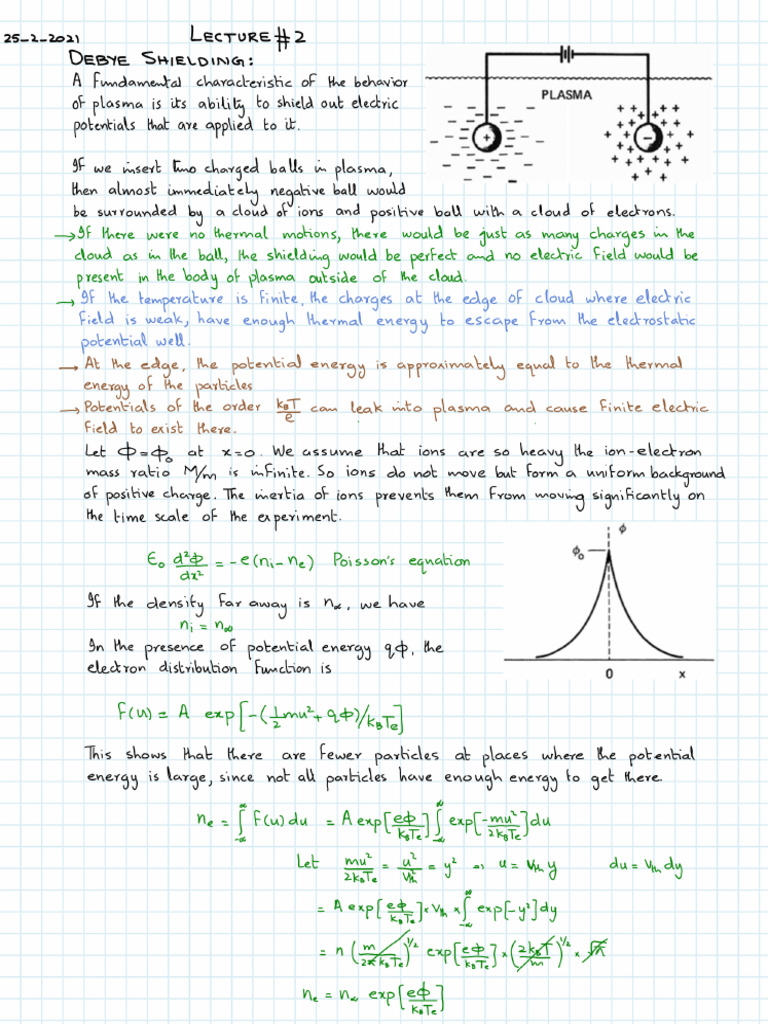 25-2-2021
LECTURE #2
DEBYE SHIELDING:
A fundamental characteristic of the behavior
of plasma is its ability to shield out electric
potentials that are applied to it.
PLASMA
+
−
If we insert two charged balls in plasma,
then almost immediately negative ball would
be surrounded by a cloud of ions and positive ball with a cloud of electrons.
→ If there were no thermal motions, there would be just as many charges in the
cloud as in the ball, the shielding would be perfect and no electric field would be
present in the body of plasma outside of the cloud.
→ If the temperature is finite, the charges at the edge of cloud where electric
field is weak, have enough thermal energy to escape from the electrostatic
potential well.
→ At the edge, the potential energy is approximately equal to the thermal
energy of the particles
→ Potentials of the order k_BT/e can leak into plasma and cause finite electric
field to exist there.
Let Φ=Φ₀ at x=0. We assume that ions are so heavy the ion-electron
mass ratio M/m is infinite. So ions do not move but form a uniform background
of positive charge. The inertia of ions prevents them from moving significantly on
the time scale of the experiment.
ε₀ d²Φ/dx² = -e(nᵢ-nₑ) Poisson's equation
If the density far away is n∞, we have
nᵢ = n∞
In the presence of potential energy qΦ, the
electron distribution function is
ϕ
ϕ₀
0
x
f(u) = A exp[-(½mu²+qΦ)/k_BTₑ]
This shows that there are fewer particles at places where the potential
energy is large, since not all particles have enough energy to get there.
nₑ = ∫_{-∞}^{∞} f(u)du = A exp[eΦ/k_BTₑ] ∫_{-∞}^{∞} exp[-mu²/2k_BTₑ]du
Let mu²/2k_BTₑ = u²/V_th² = y² ⇒ u = V_th y du = V_th dy
= A exp[eΦ/k_BTₑ] × V_th × ∫_{-∞}^{∞} exp[-y²]dy
= n (m/2πk_BTₑ)^{1/2} exp[eΦ/k_BTₑ] × (2k_BT/m)^{1/2} × √π
nₑ = n∞ exp[eΦ/k_BTₑ]